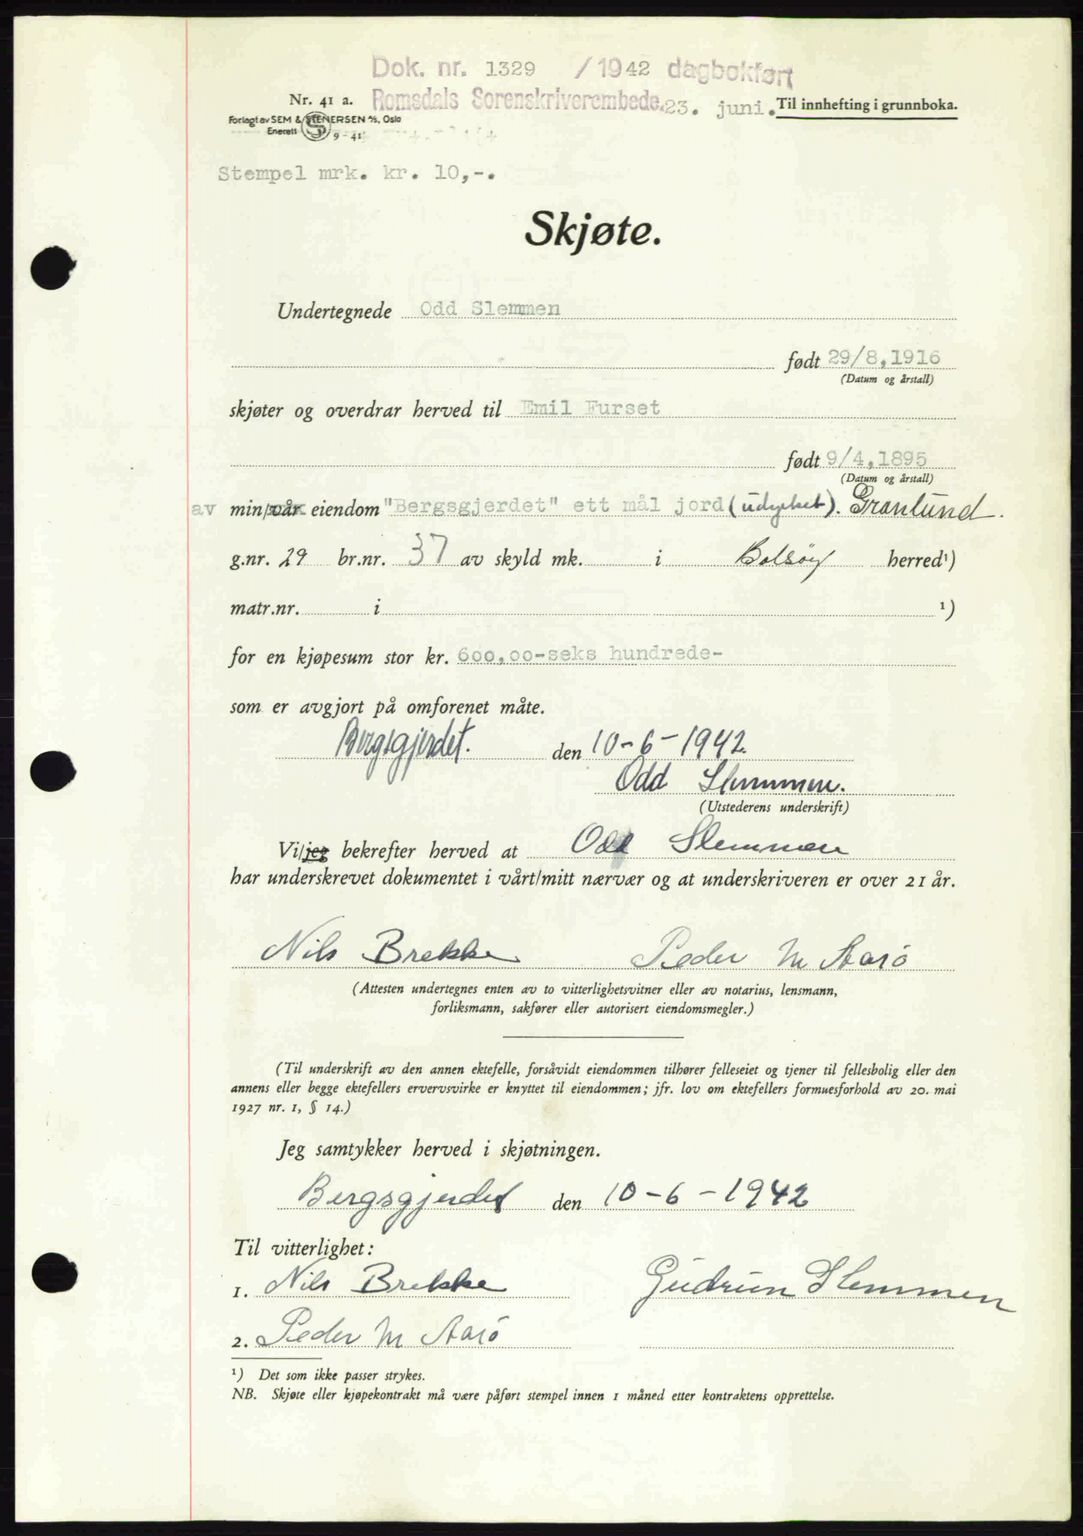 Dok. nr. 1329 /1942 dagbokført
Nr. 41 a. Romsdals Sorenskriverembede. 23. juni. Til innhefting i grunnboka.
Forlagt av SEM & STENERSEN A/S, Oslo
Enerett 9-41
Stempel mrk. kr. 10,-.
Skjøte.
Undertegnede Odd Slemmen
født 29/8,1916
(Datum og årstall)
skjøter og overdrar herved til Emil Furset
født 9/4,1895
(Datum og årstall)
av min/vår eiendom "Bergsgjerdet" ett mål jord (udyrket). Granlund.
g.nr. 29 br.nr. 37 av skyld mk. i Bolsöy herred¹)
matr.nr. i ¹)
for en kjøpesum stor kr. 600,00-seks hundrede-
som er avgjort på omforenet måte.
Bergsgjerdet. den 10-6-1942.
Odd Slemmen.
(Utstederens underskrift)
Vi/jeg bekrefter herved at Odd Slemmen
har underskrevet dokumentet i vårt/mitt nærvær og at underskriveren er over 21 år.
Nils Brekke Peder M Aarö
(Attesten undertegnes enten av to vitterlighetsvitner eller av notarius, lensmann,
forliksmann, sakfører eller autorisert eiendomsmegler.)
(Til underskrift av den annen ektefelle, forsåvidt eiendommen tilhører felleseiet og tjener til fellesbolig eller den
annens eller begge ektefellers ervervsvirke er knyttet til eiendommen; jfr. lov om ektefellers formuesforhold av 20. mai
1927 nr. 1, § 14.)
Jeg samtykker herved i skjøtningen.
Bergsgjerdet den 10-6-1942
Til vitterlighet:
1. Nils Brekke Gudrun Slemmen
2. Peder M Aarö
¹) Det som ikke passer strykes.
NB. Skjøte eller kjøpekontrakt må være påført stempel innen 1 måned etter kontraktens opprettelse.